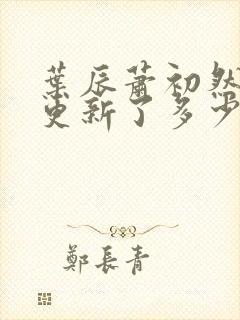 葉辰蕭初然
更新了多少
鄭長青